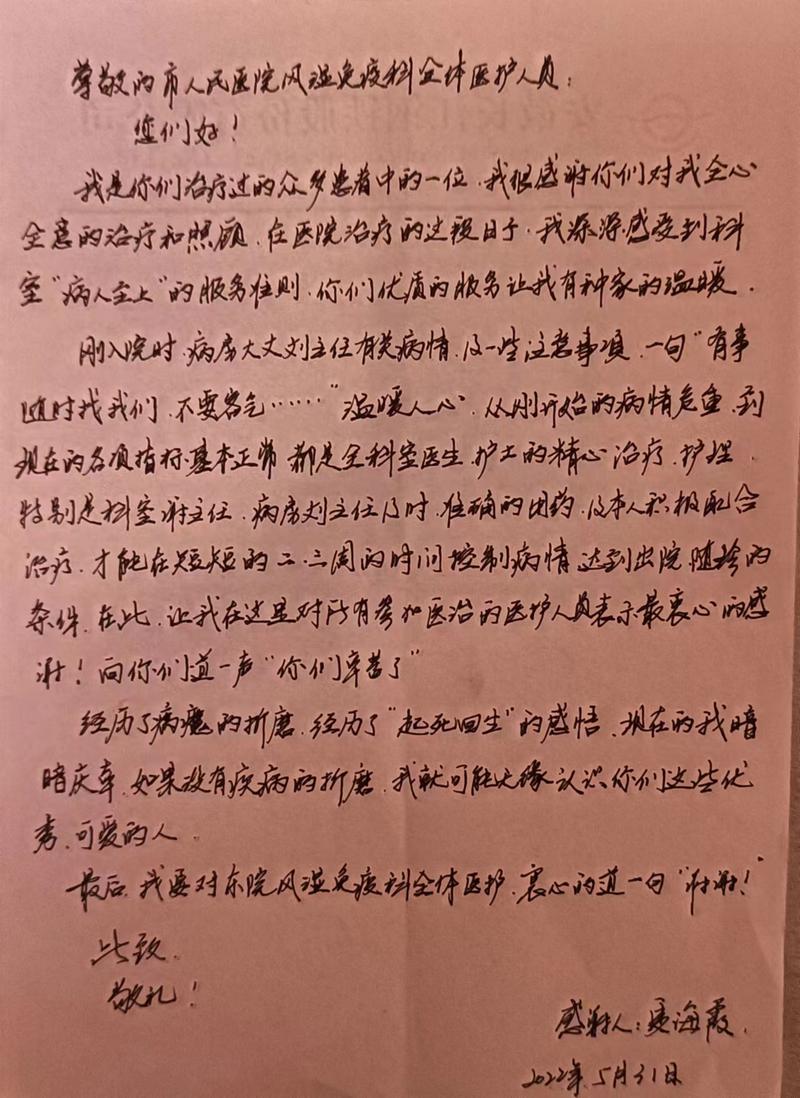 尊敬的市人民医院风湿免疫科全体医护人员：
您们好！
我是你们治疗过的众多患者中的一位，我很感谢你们对我全心
全意的治疗和照顾，在医院治疗的这段日子，我深深感受到科
室“病人至上”的服务准则，你们优质的服务让我有种家的温暖。
刚入院时，病房大丈刘主任有关病情，及一些注意事项，一句“有事
随时找我们，不要客气……”温暖人心，从刚开始的病情危重，到
现在的各项指标基本正常，都是全科室医生、护士的精心治疗、护理，
特别是科室谢主任，病房刘主任及时、准确的用药，及本人积极配合
治疗，才能在短短的二、三周的时间控制病情达到出院随诊的
条件，在此，让我在这里对所有参加医治的医护人员表示最衷心的感
谢！向你们道一声“你们辛苦了”
经历了病魔的折磨，经历了“起死回生”的感悟，现在的我暗
暗庆幸，如果没有疾病的折磨，我就可能无缘认识你们这些优
秀、可爱的人。
最后，我要对东院风湿免疫科全体医护，衷心的道一句“谢谢！”
此致
敬礼！
感谢人：海霞
2022年5月31日